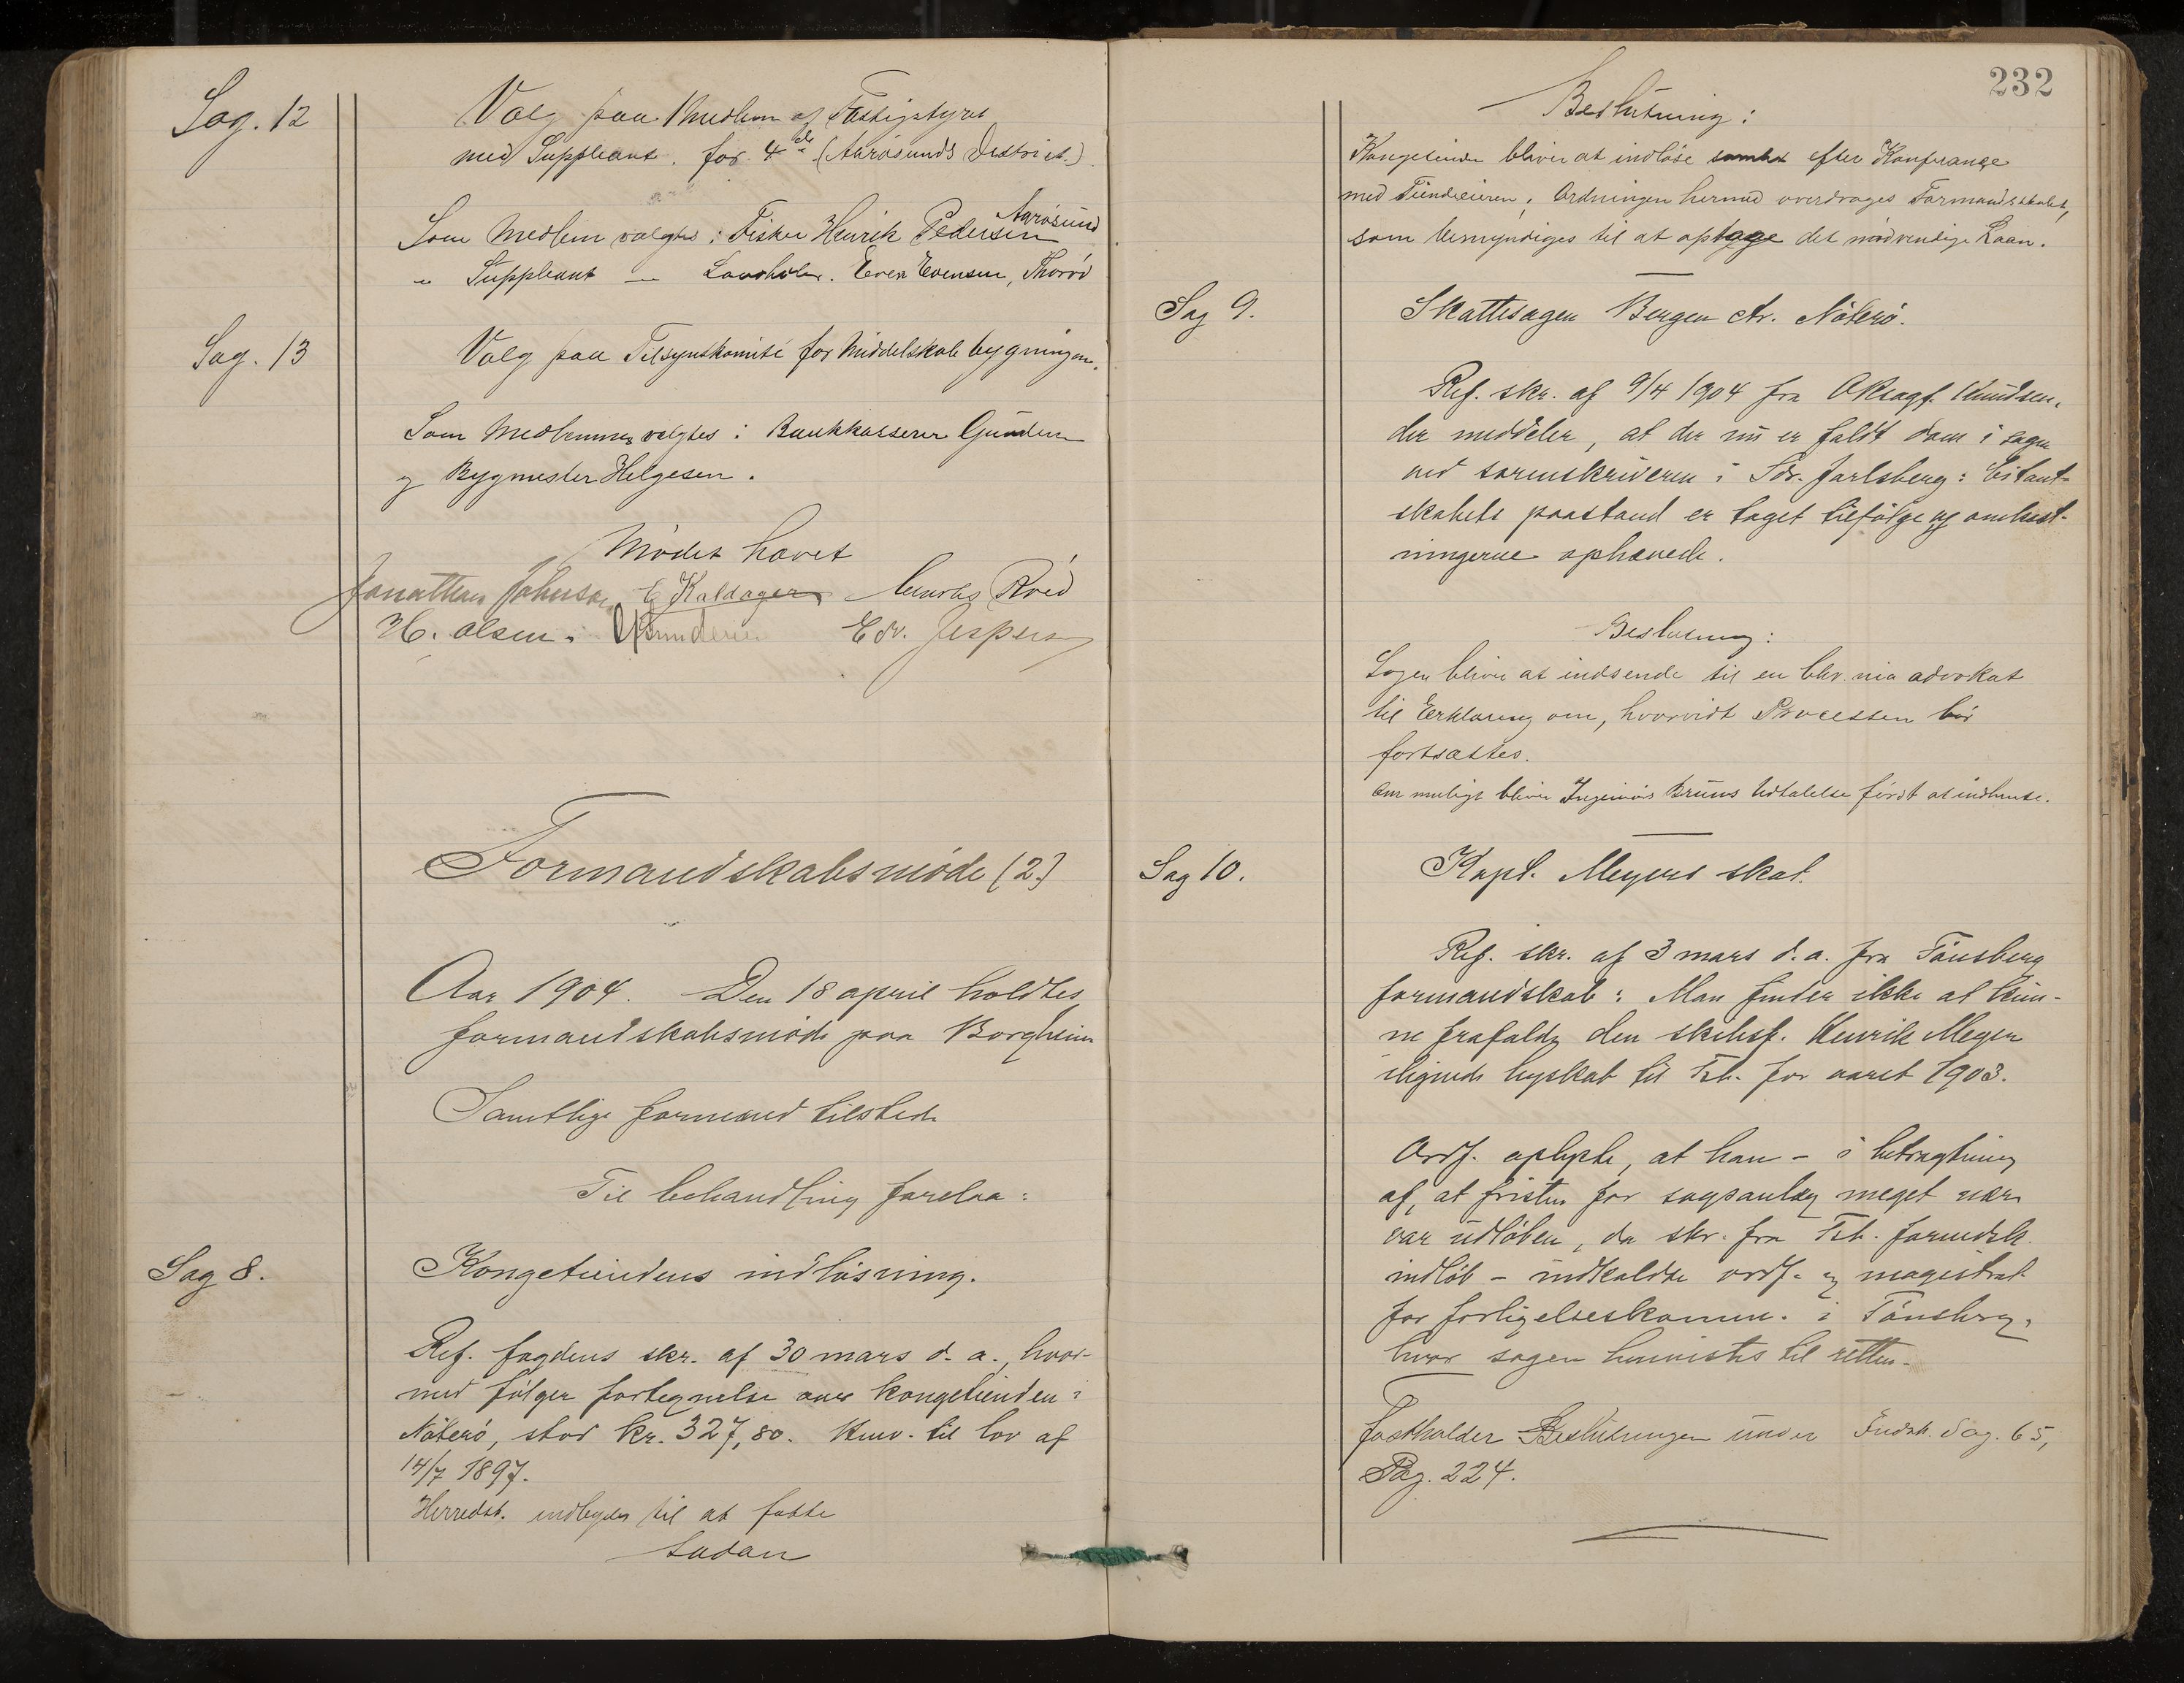 Sag. 12
Valg paa 1 medlem af Fattigstyret
med Suppleant. for 4de (Aarøsunds District.)
Som Medlem valgtes: Fisker Henrik Pedersen Aarøsund
" Suppleant — Even Evensen, Thorød
Sag. 13
Valg paa Tilsynskomité for Middelskolebygningen.
Som Medlemmer valgtes: Bankkasserer Gundersen
og Bygmester Helgesen.
Mødet hævet
Jonathan Johnsen Kaldager Røed
H. Olsen. Gundersen Edv. Jespersen
Formandskabsmøde (2.)
Aar 1904. Den 18 april holdtes
formandskabsmøde paa Borgheim
Samtlige formænd tilstede
Til behandling forelaa:
Sag 8.
Kongetiendens indløsning.
Ref. fogdens skr. af 30 mars d. a., hvor-
med følger fortegnelse over kongetienden i
Nøterø, stor kr. 327,80. Henv. til lov af
14/7 1897.
Herredst. indbydes til at fatte
saadan
232
Beslutning:
Kongetiende bliver at indløse efter Konferance
med Tiendeeieren; Ordningen hermed overdrages Formandskabet,
som bemyndiges til at optage det nødvendige Laan.
Sag 9.
Skattesagen Bergen ctr. Nøterø.
Ref. skr. af 9/4 1904 fra Oksagf. Knudsen,
der meddeler, at der nu er faldt dom i sagen
ved sorenskriveren i Sdr. Jarlsberg: Citant-
skabets paastand er taget tilfølge og omkost-
ningerne ophævede.
Beslutning:
Sagen bliver at indsende til en advokat
til Erklæring om, hvorvidt Processen bør
fortsættes.
Om muligt bliver Ingeniør Bruuns Udtalelse først at indhente.
Sag 10.
Kapt. Meyers skat.
Ref. skr. af 3 mars d. a. fra Tønsberg
formandskab: Man finder ikke at kun-
ne frafalde den skibsf. Henrik Meyer
ilignede byskat til Tsb. for aaret 1903.
Ordf. oplyste, at han – i betragtning
af, at fristen for sagsanlæg meget nær
var udløben, da skr. fra Tsb. formdsk.
indløb – indkaldte ordf. og magistrat
for forligelseskomm. i Tønsberg,
hvor sagen henvistes til retten.
Fastholder Beslutningen under Sag. 65,
Pag. 224.